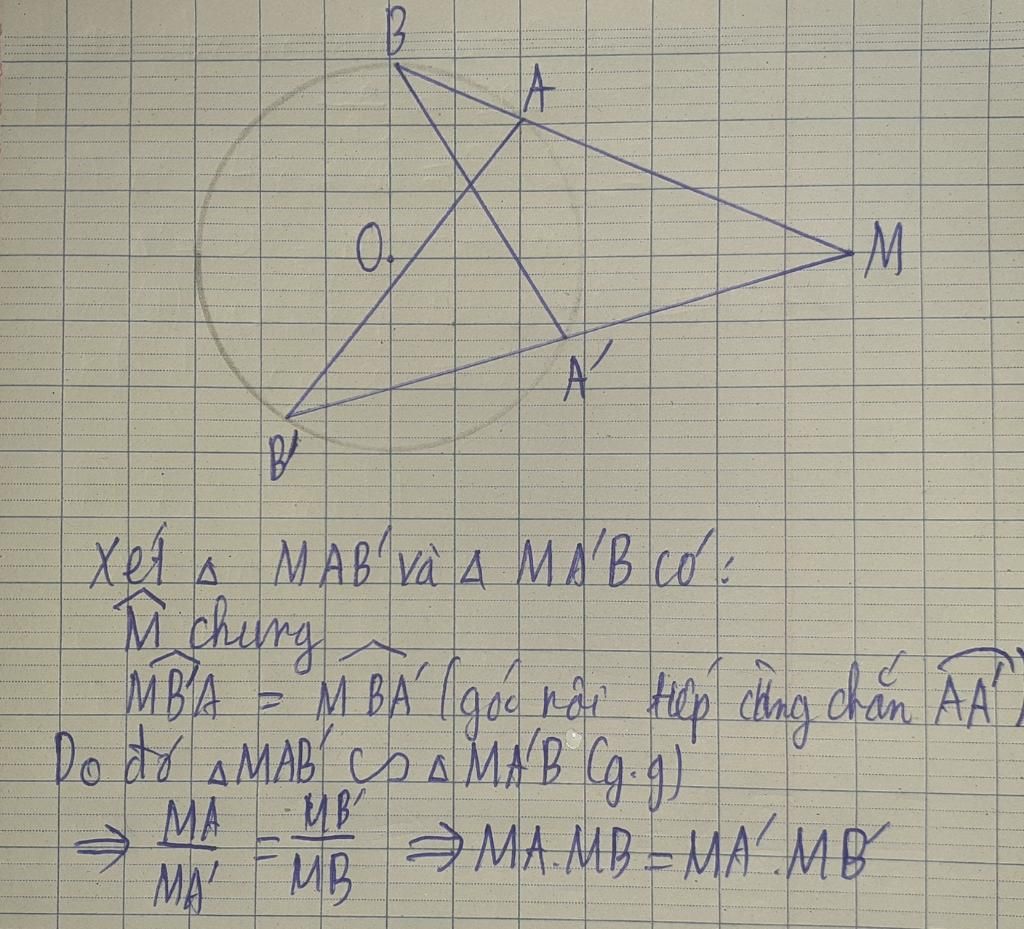 B
A
O.
M
A'
B'
Xét △ MAB' và △ MA'B có:
M̂ chung
MB'A = MBA' (góc nội tiếp cùng chắn AA')
Do đó △MAB' ∽ △MA'B (g.g)
⇒ MA/MA' = MB'/MB ⇒ MA.MB = MA'.MB'